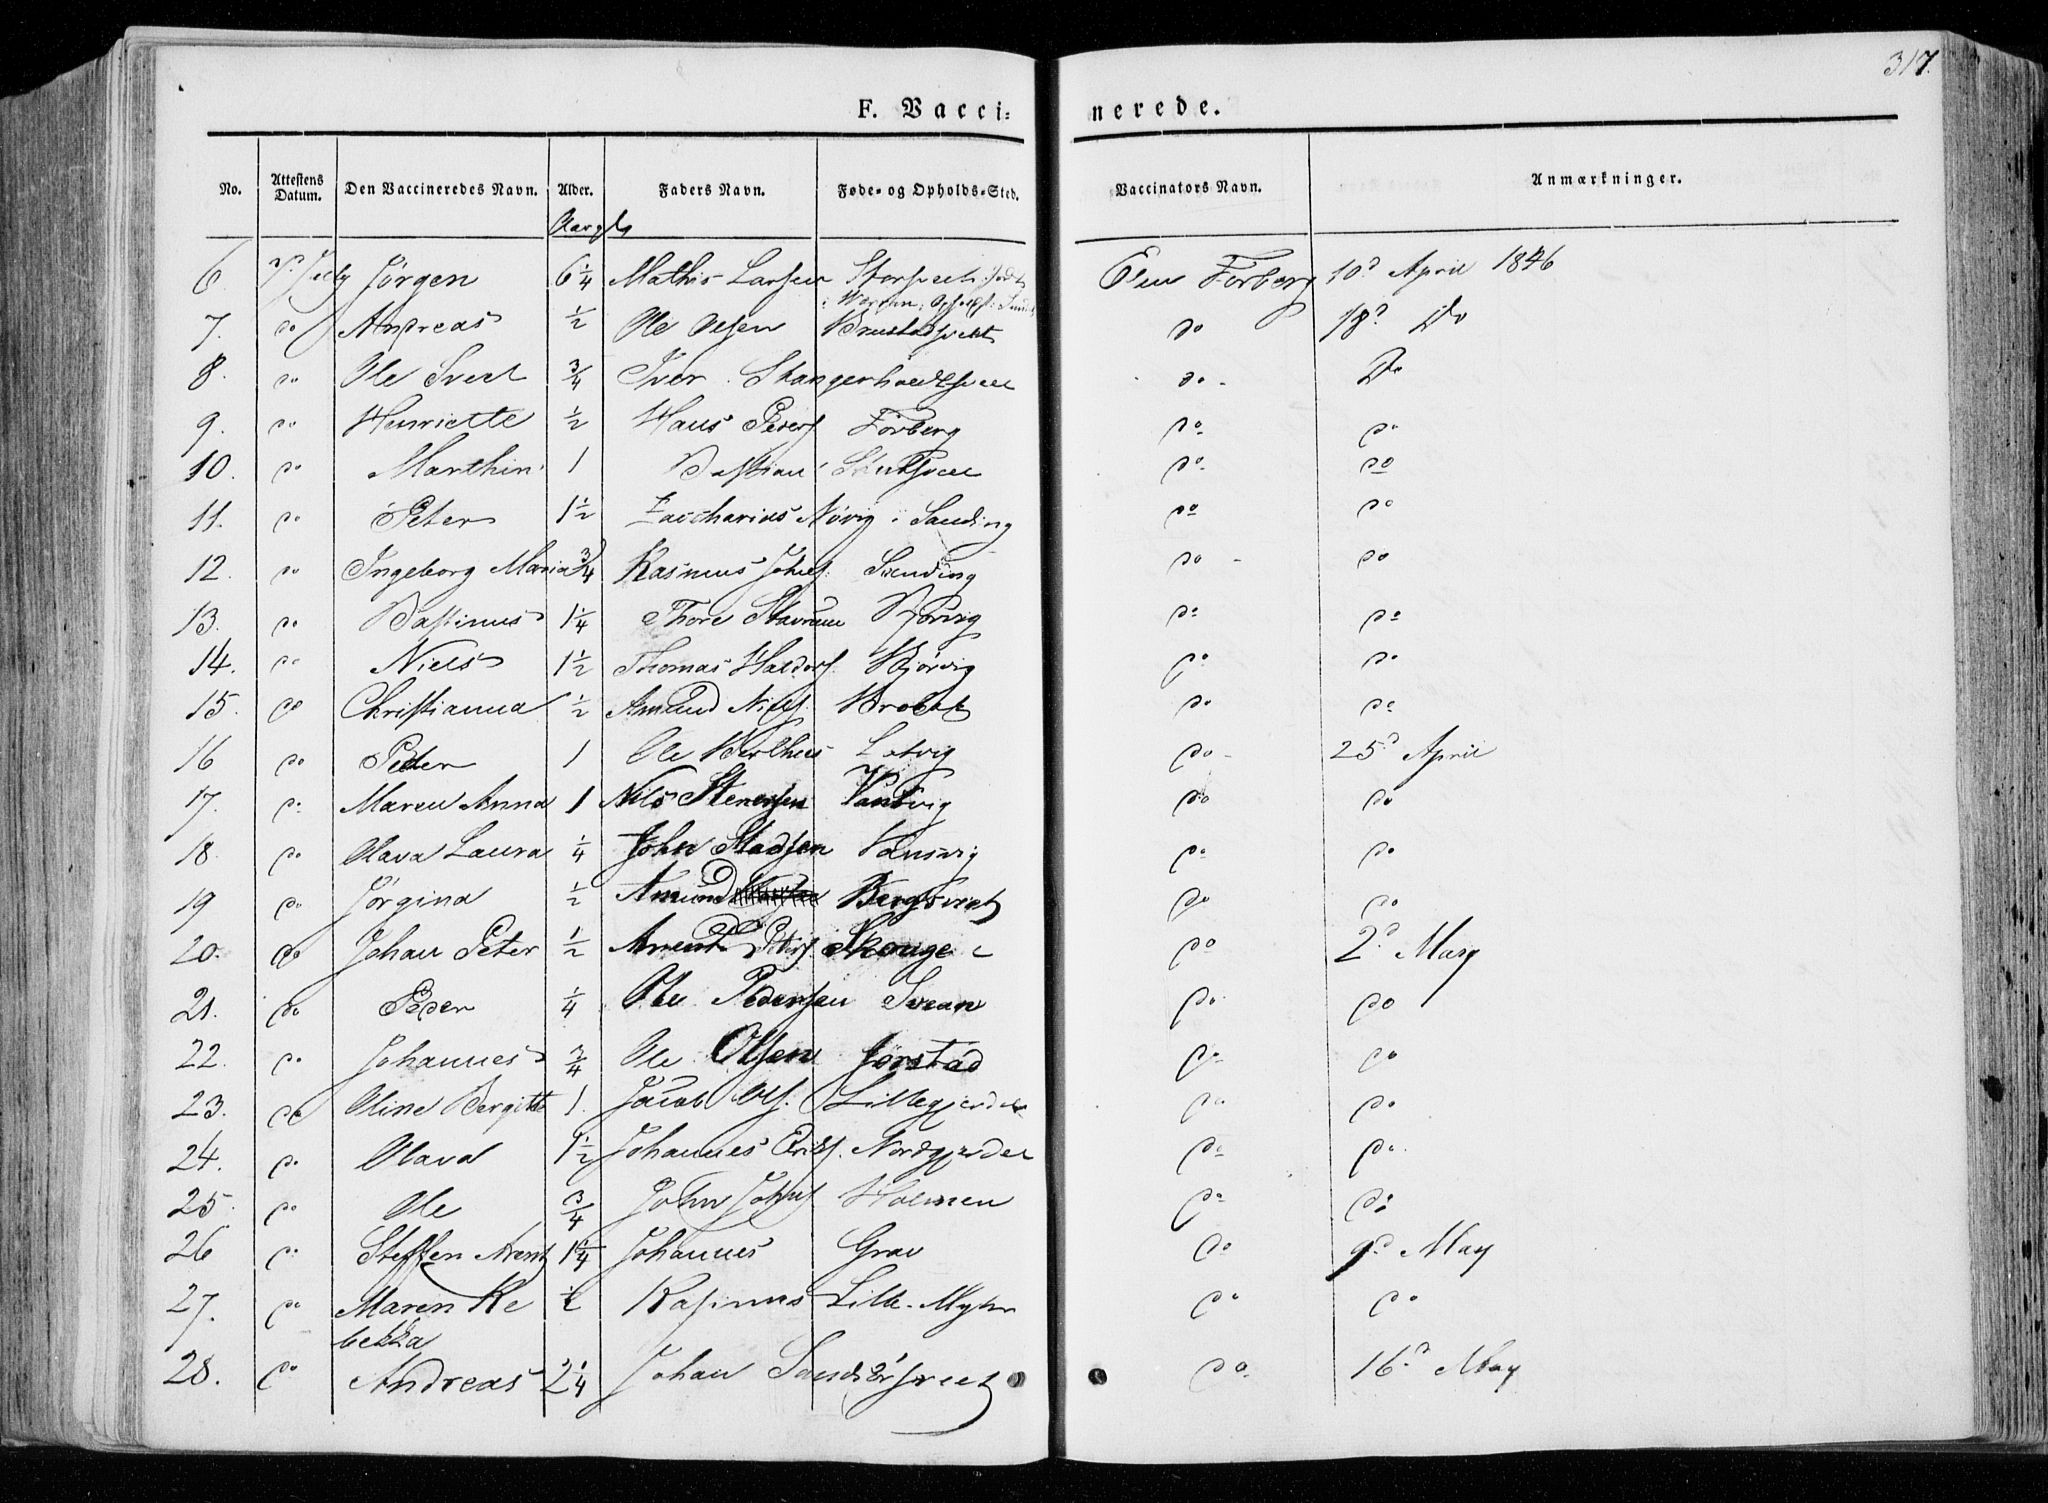 317.
F. Vacci: nerede.
No. Attestens Datum. Den Vaccineredes Navn. Alder. Faders Navn. Føde- og Opholds-Sted. Vaccinators Navn. Anmærkninger.
6. July Jørgen 6 1/4 Mathis Larsen Elen Forberg 10d April 1846
7. do Andreas 1/2 Ole Olsen do 18d Do
8. do Ole 3/4 Iver do Do
9. do Henriette 1/2 Hans Peders Forberg do do
10. do Marthin 1 Bastian do do
11. do Peter 1 1/2 Zaccharias Nøvig i Sanding do do
12. do Ingeborg Maria 3/4 Rasmus Johns. Sanding do do
13. do Bastinus 1 1/4 Thore Stavrum Bjørvig do do
14. do Niels 1 1/2 Thomas Haldors. Bjørvig do do
15. do Christianna 1/2 Amund Nils. do do
16 do Peder 1 Ole Løtvig do 25d April
17. do Maren Anna 1 Nils Stenersen Vansvig do do
18 do Olava Laura 1/4 John Madsen Vansvig do do
19 do Jørgina 1/2 Amund do do
20. do Johan Peter 1/2 Arent do 2d May
21. do Peder 1/4 Ole Pedersen Svean do do
22. do Johannes 3/4 Ole Olsen Jørstad do do
23. do Oline Bergitte 1. Jacob Ols. Lillegjerdet do do
24. do Olava 1 1/2 Johannes Eriks. Nordgjerdet do do
25. do Ole 3/4 John Johns Holmen do do
26 do Steffen Arent 1 1/4 Johannes Grav do 9d May
27. do Maren Re 1/2 Rasmus Lille-Myhr do do
bekka
28. do Andreas 2 1/4 Johan do 16d May